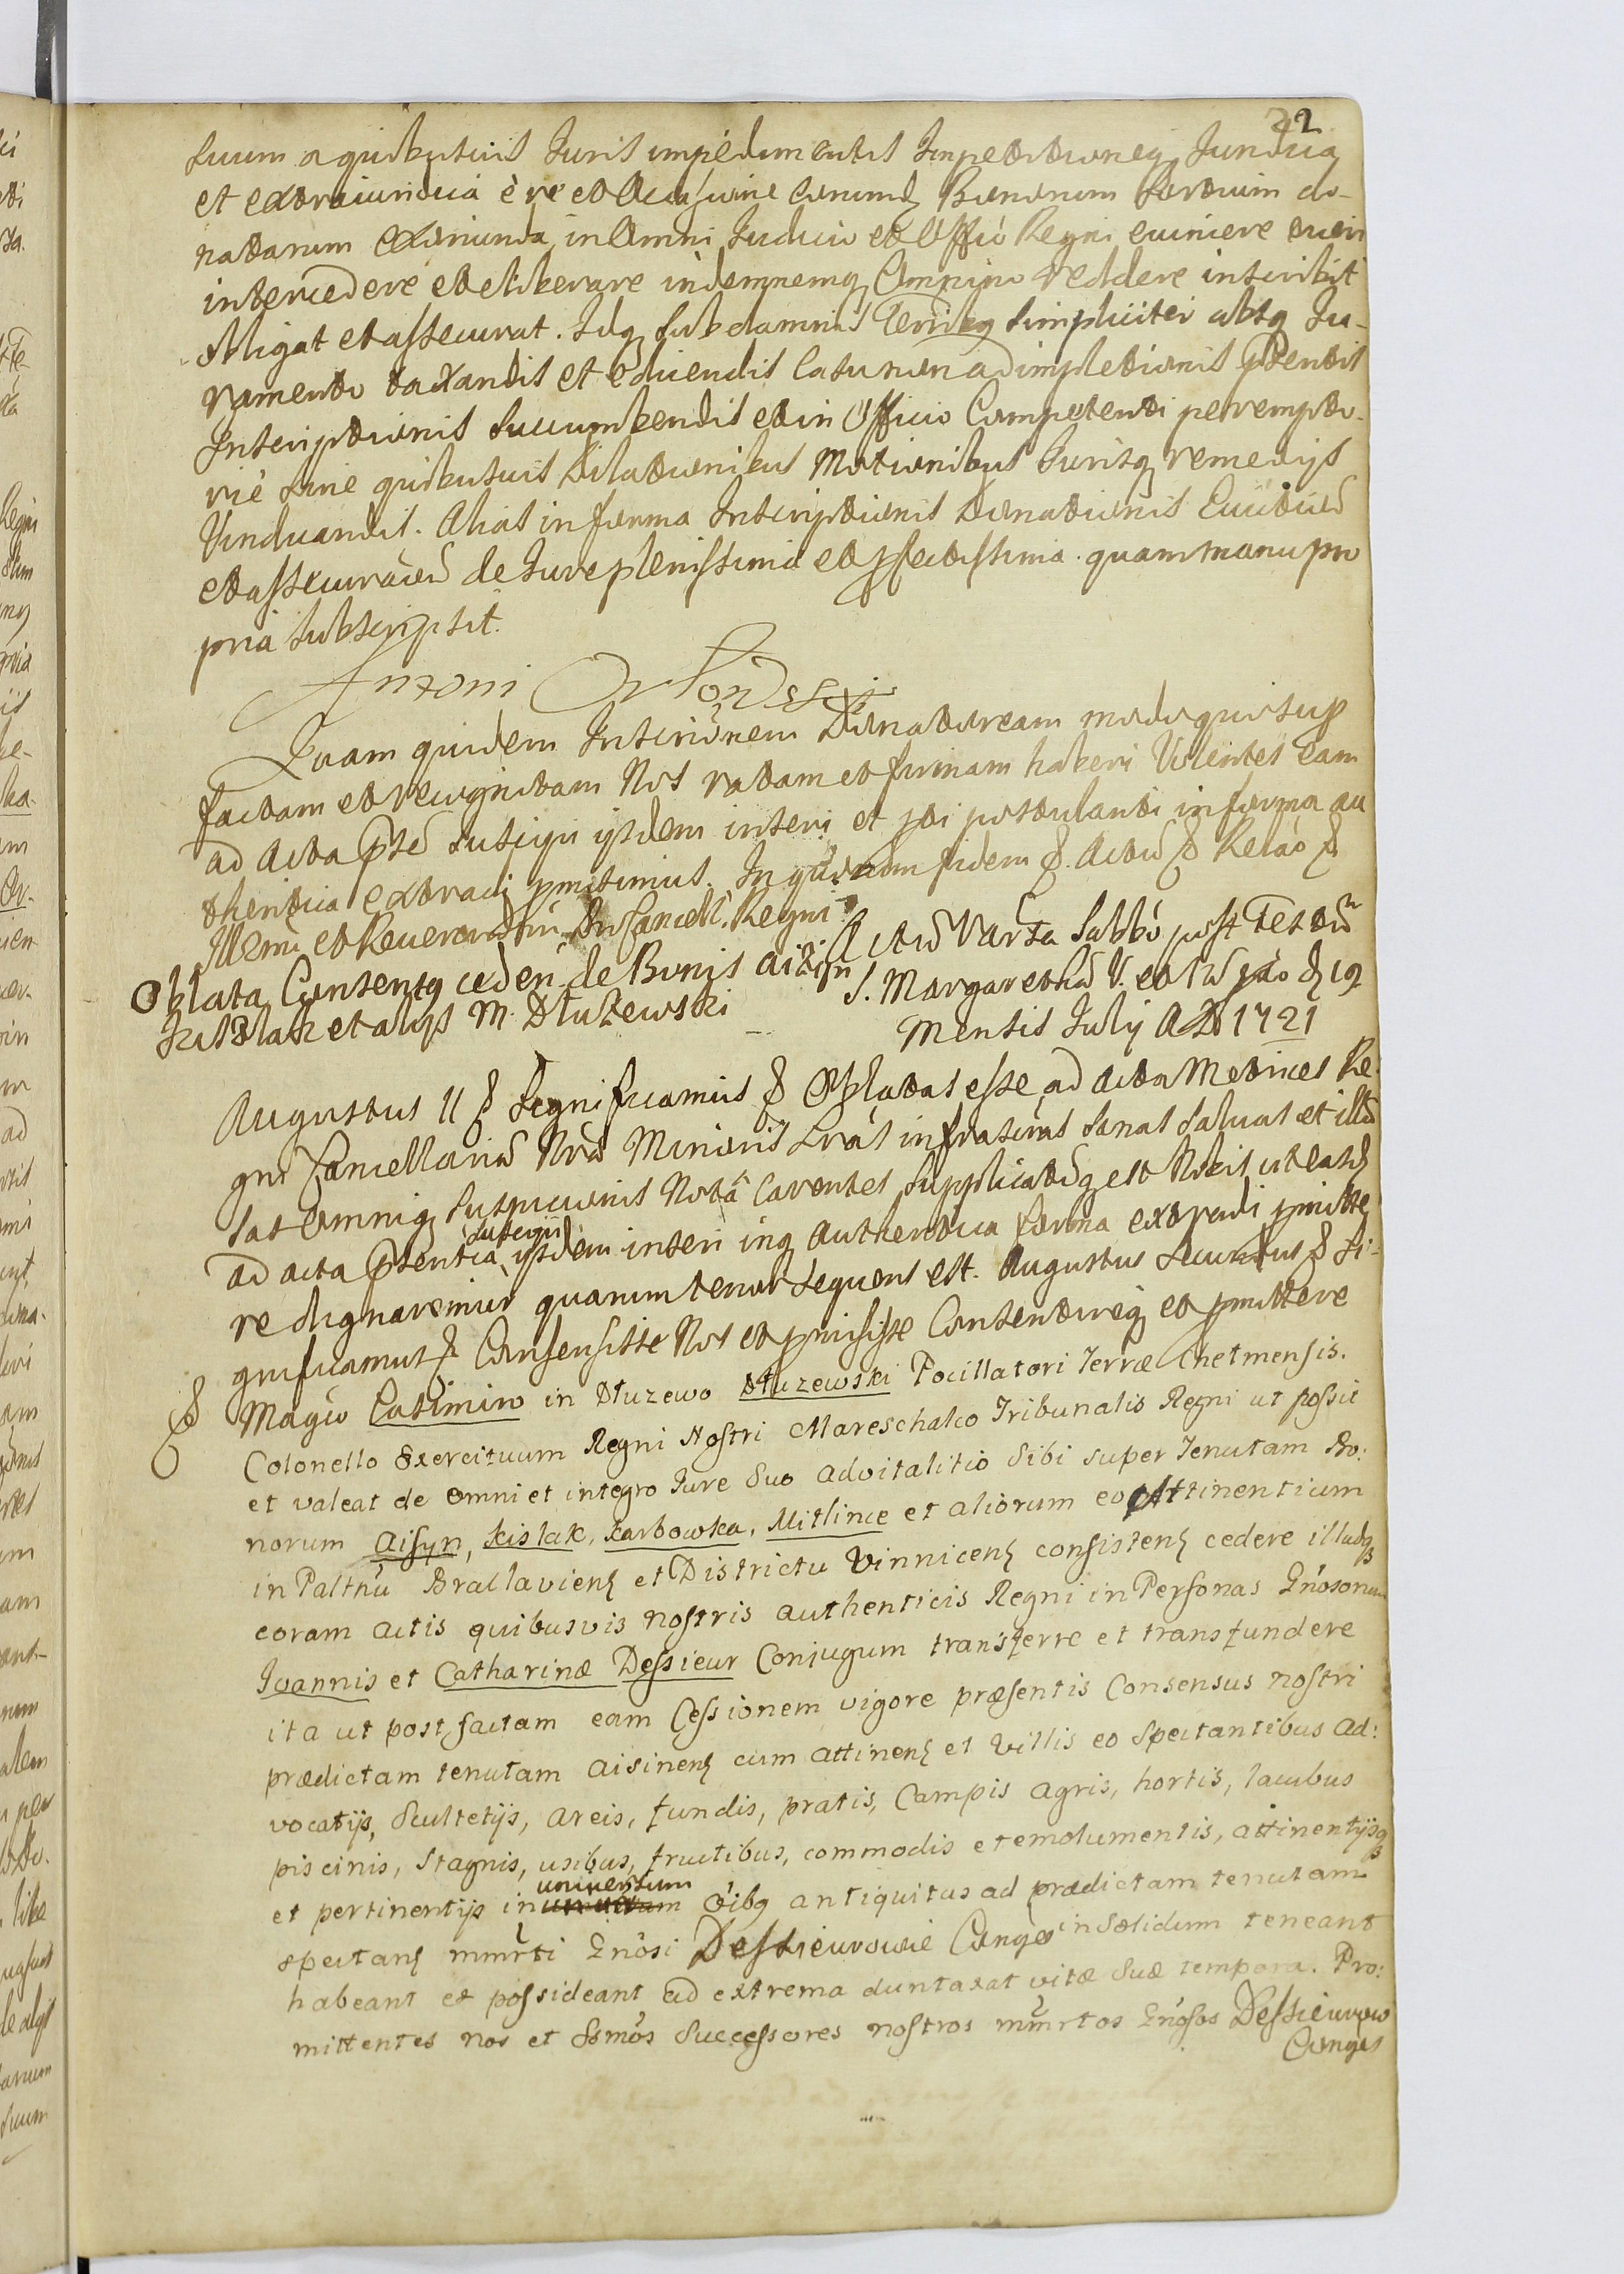 22
suum a quibusuis Juris impedimentis Impetitioneq Jundica
et extraiundica ere et occasione eorund Bonorum Sortium do-
natarum eximunda in Omni Judicio et Offio Regni euincere tueri
intercedere et eliberare indemnemq Omnino reddere inscribit
obligat et assecurat. Idq sub damnis Terribq simpliciter absq Ju-
ramento taxandis et educendis Casu non adimpletionis ptentis
Inscriptionis succumbendis et in Officio Competenti perempto-
rie sine quibusuis Dilationibus Motionibus Jurisq remedijs
Vindicandis. Alias in forma Inscriptionis Donationis Euictio
et assecuraõ de Jure plenissima et pfectissima. quam manu pro
pria subscripsit.
Antoni Orłowski
Quam quidem Inscrionem Donatoream modo quo sup
factam et recognitam Nos ratam et firmam haberi Volentes eam
ad Acta pste suscipi ijsdem inseri et pti postulanti in forma au
thentica extradi pmisimus. In quorum fidem &. Actu & Relao &
Illemi et Reuerendmi Dni Cancell. Regni
Oblata Consensq ceden. de Bonis Aizijn
Kisłak et alijs M. Dłużewski
Actu Varsa Sabbo post Festu
S. Margaretha V. et M pao d 19
Mensis Julij A D 1721
Augustus II & Significamus & Oblatas esse ad Acta Metrices Re
gni Cancellaria Nra Minoris Lras infrascras sanas saluas et illa
sas omniq suspicionis Nota Carentes supplicatuq est Nobis ut easd
ad acta ptentia suscipi ijsdem inseri inq authentica forma extradi pmitte
re dignaremur quarum tenor sequens est. Augustus Secundus & Si-
gnificamus & Consensisse Nos et pmisisse Consentireq et pmittere
& Magco Casimiro in Dłuzewo Dłuzewski Pocillatori Terræ Chelmensis.
Colonello Exercituum Regni Nostri Mareschalco Tribunalis Regni ut possit
et valeat de omni et integro Jure Suo advitalitio Sibi super Tenutam Bo:
norum Aisyn, Kislak, Karbowka, Mitlince et aliorum eo Attinentium
in Paltnu Braclaviens et Districtu Vinnicens consistens cedere illudq
coram actis quibusvis nostris authenticis Regni in Personas Gnosorum
Ioannis et Catharinæ Dessieur Conjugum transferre et transfundere
ita ut post factam eam Cessionem vigore præsentis Consensus nostri
prædictam tenutam Aisinens cum attinens et Villis eo Spectantibus Ad:
vocatijs, Scultetijs, areis, fundis, pratis, Campis agris, hortis, lacubus
piscinis, Stagnis, usibus, fructibus, commodis et emolumentis, attinentijsq
et pertinentijs in universum oibq antiquitus ad prædictam tenutam
spectans mmrti Gnosi Dessieurowie Conges in Solidum teneant
habeant et possideant ad extrema duntaxat vitæ Suæ tempora. Pro:
mittentes nos et Ssmos Successores nostros mmrtos Gnosos Dessieurow
Conges